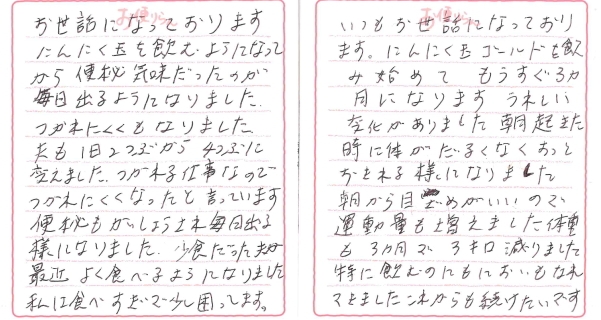 お便り
お世話になっております
にんにく玉を飲むようになって
から便秘気味だったのが
毎日出るようになりました.
つかれにくくもなりました
夫も1日2つぶから4つぶに
変えました.つかれる仕事なので
つかれにくくなったと言っています
便秘もかいしょうされ毎日出る
様になりました.少食だった夫が
最近よく食べるようになりました
私は食べすぎで少し困ってます。
お便り
いつもお世話になっており
ます。にんにく玉ゴールドを飲
み始めて もうすぐ3カ
月になります うれしい
変化がありました 朝起きた
時に体がだるくなくおっと
おきれる様になりました
朝から目ざめがいいので
運動量も増えました体重
も3カ月で3キロ減りました
特に飲むのにもにおいもなれ
てきましたこれからも続けたいです